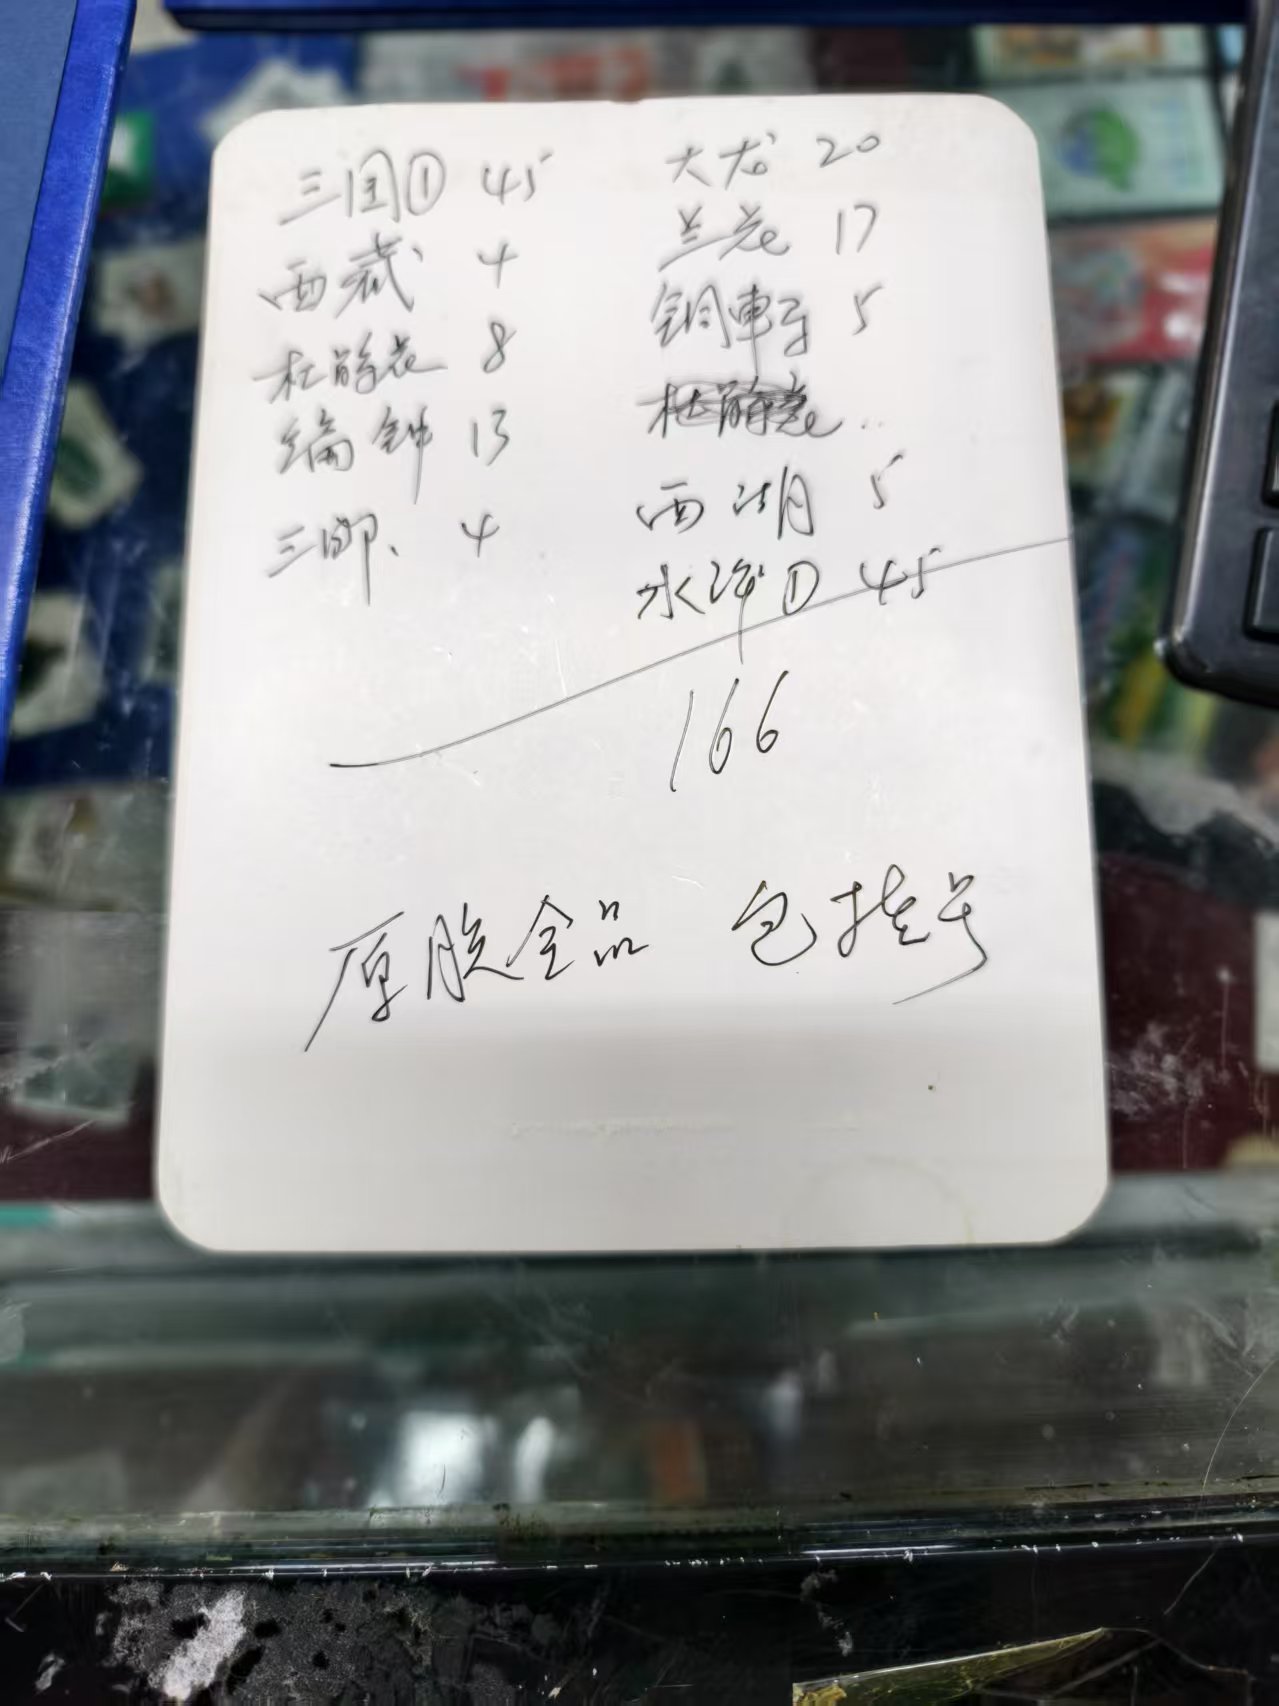 三国① 45
西藏 4
杜鹃花 8
编钟 13
三邮、 4
大龙 20
兰花 17
铜車马 5
西湖 5
水浒① 45
166
原胶全品 包挂号